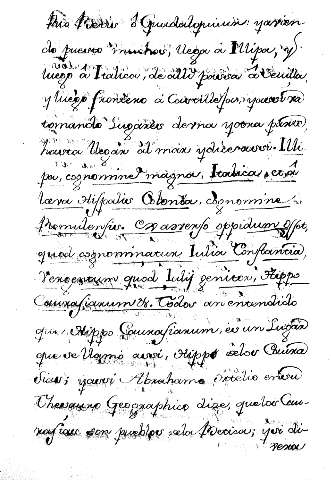 Rio Betis o Guadalquivir: y avien-
do puesto muchos, llega à Illipa, y
luego à Italica, de alli passa à Sevilla,
y luego frontero à
tomando Lugares de una y otra parte
hasta llegar al mar y dize assi: Illi-
pa, cognomine magna, Italica, et à
læva Hispalis Colonia, cognomine
Romulensis. Ex adverso oppidum Osset,
quod cognominatur Iulia Constantia,
Vergentum quod Iulij genitor, Hippo
Caurasiarum &. Todos an entendido
que Hippo Caurasiarum, es un Lugar
que se llamó assi, Hippo de los Caura-
sias; y assi Abrahamo Ortelio en su
Thesauro Geographico dize, que los Cau-
rasias son pueblos de la Betica; y si di-
xera